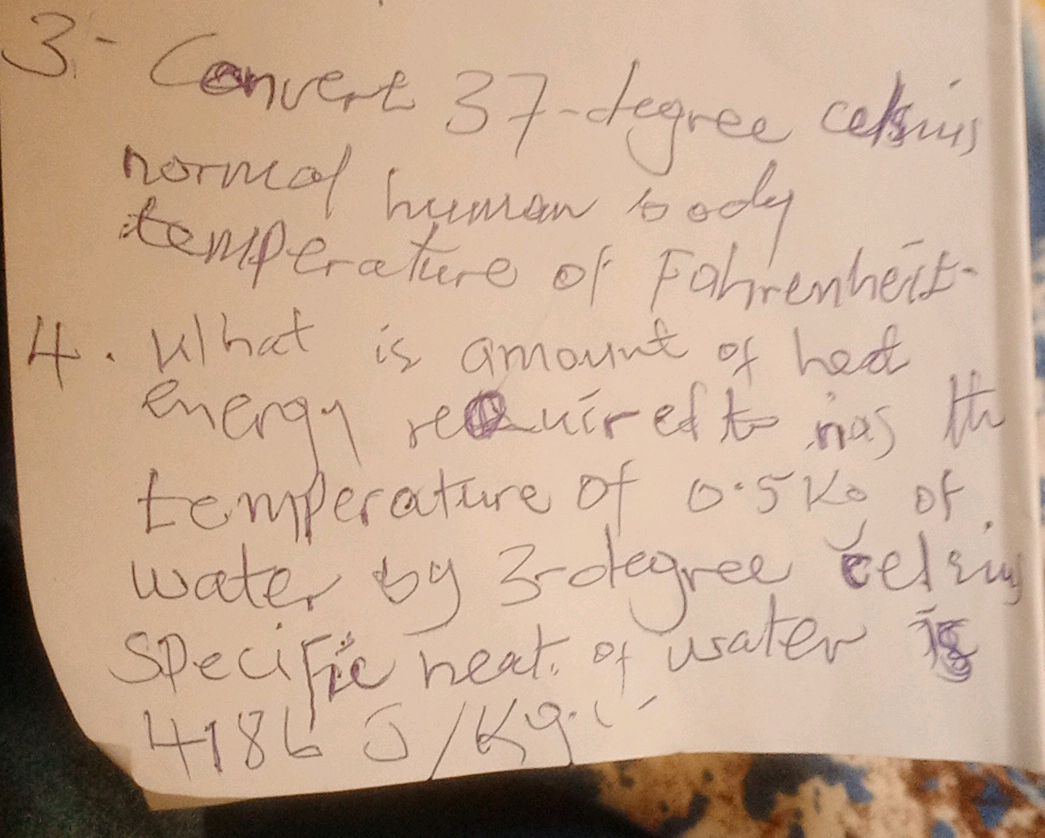 3- Convert 37-degree celsius
normal human body
temperature of Fahrenheit-
4. What is amount of heat
energy required to the
temperature of 0.5 Kg of
water by 3-degree celsius
specific heat. of water is
4186 J/Kg.